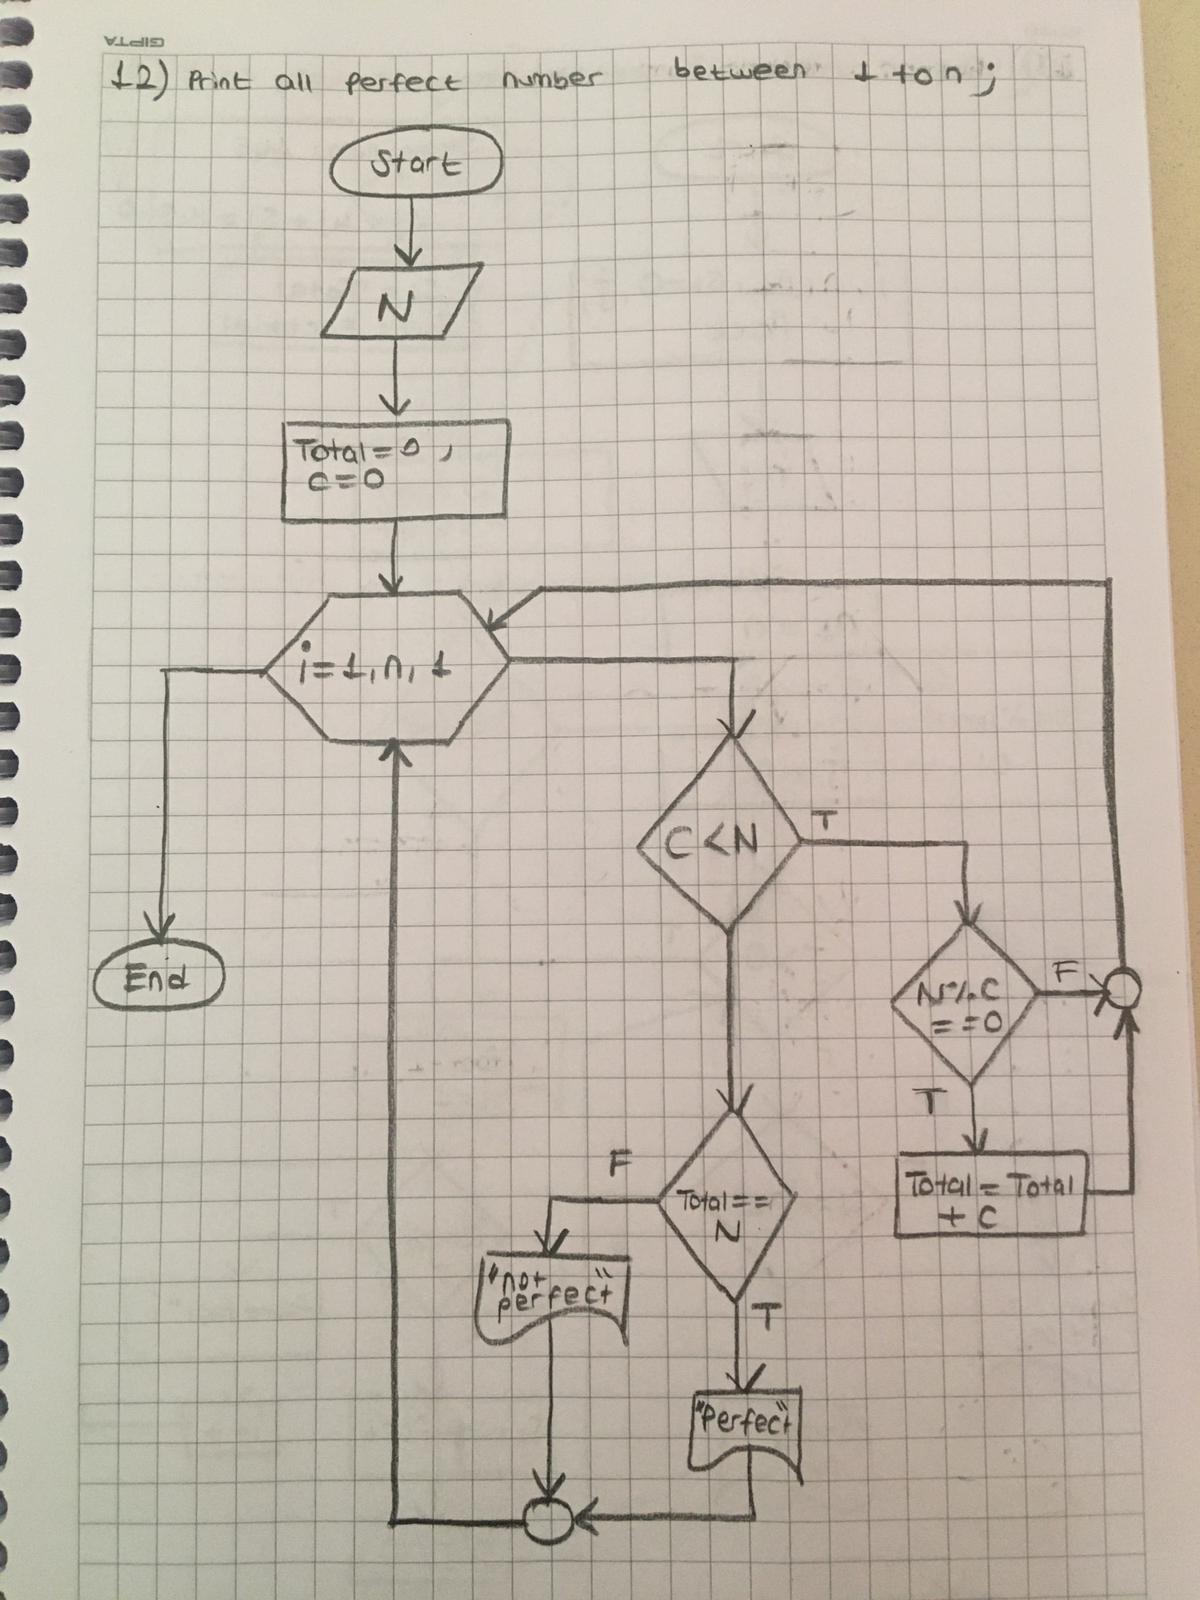 GIPTA
12) Print all perfect number between 1 to n;
Start
N
Total=0,
c=0
i=1,n,1
C<N
T
End
N%C
==0
F
T
Total=Total
+ C
Total==
N
F
"not
perfect"
T
"Perfect"